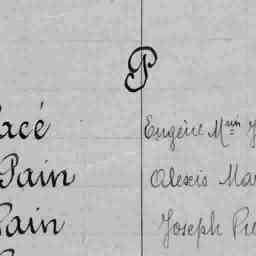 P
acé Eugène Min
Pain Alexis Mar
Pain Joseph Pie